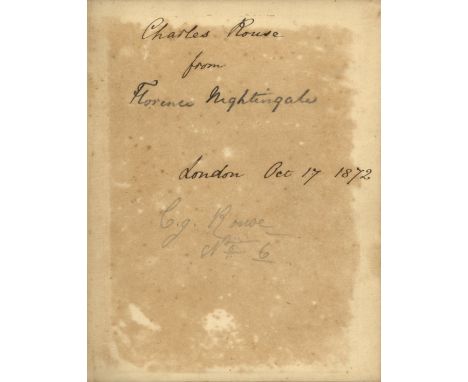 Charles Rouse
from
Florence Nightingale
London Oct 17 1872
C. g. Rouse
No 6